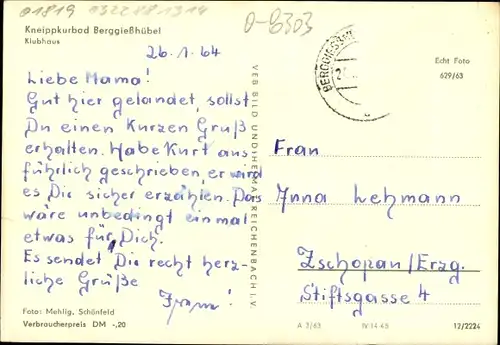 01819 0322881314
D-8303
Kneippkurbad Berggießhübel
Klubhaus
26.1.64
Liebe Mama!
Gut hier gelandet, sollst
Du einen Kurzen Gruß
erhalten. Habe Kurt aus
führlich geschrieben, er wird
es Dir sicher erzählen. Das
wäre unbedingt einmal
etwas für Dich.
Es sendet Dir recht herz-
liche Grüße
Foto: Mehlig, Schönfeld
Verbraucherpreis DM -,20
VEB BILD UND HEIMAT REICHENBACH I. V.
BERGGIESSH
Echt Foto
629/63
Frau
Anna Lehmann
Zschopau/Erzg.
Stiftsgasse 4
A 3/63 IV-14-48 12/2224